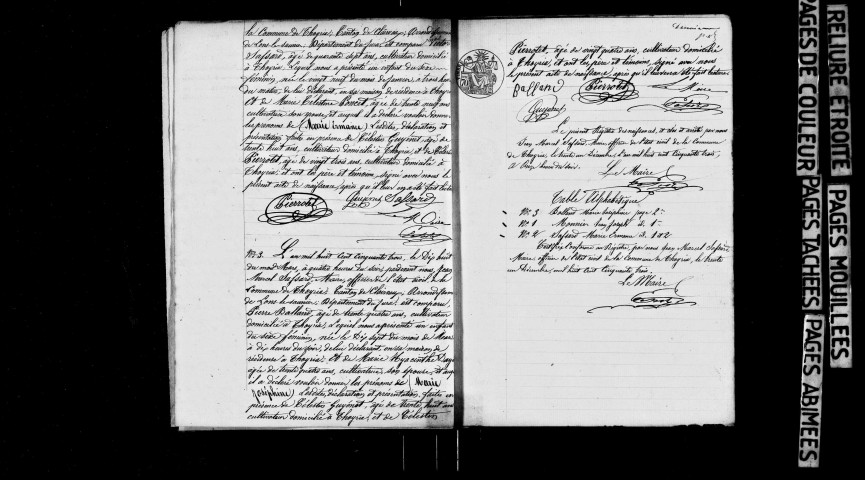 la Commune de Thoyria, Canton de Clairvaux, Arrondissement
de Lons le saunier, Département du Jura, est comparu
Saffard, âgé de quarante sept ans, cultivateur domicilié
à Thoyria, Lequel nous a présenté un enfant du sexe
féminin, née le vingt neuf du mois de Janvier à trois heures
du matin, de lui déclarant, en sa maison de résidence à Thoyria
Et de Marie Célestine, âgée de trente neuf ans
cultivatrice son épouse, et auquel il a déclaré vouloir donner
les prénoms de (Marie Ermane) Lesdites déclaration et
présentation faites en présence de Célestin Guyénot, âgé de
trente huit ans, cultivateur domicilié à Thoyria, et de
Pierrotet, âgé de vingt trois ans, cultivateur domicilié à
Thoyria, et ont les père et témoins, signé avec nous le
présent acte de naissance, après qu'il leur en a été fait lecture
Pierrotet Guyénot Saffard
Maire
N° 3. L'an mil huit cent cinquante trois, le Dix huit
du mois de Mars, à quatre heures du soir, pardevant nous, Jean
Marcel Saffard, Maire, officier de l'état civil de la
Commune de Thoyria, Canton de Clairvaux, Arrondissement
de Lons le saunier, Département du Jura, est comparu
Pierre Balland, âgé de trente quatre ans, cultivateur
domicilié à Thoyria, Lequel nous a présenté un enfant
du sexe féminin, née le Dix sept du mois de Mars
à dix heures du soir, de lui déclarant, en sa maison de
résidence à Thoyria, Et de Marie Hyacinthe
âgée de trente quatre ans, cultivatrice, son épouse, et auquel
il a déclaré vouloir donner les prénoms de (Marie
Joséphine) Lesdites déclaration et présentation faites en
présence de Célestin Guyénot, âgé de trente huit ans
cultivateur domicilié à Thoyria, et de Célestin
Dernier
Pierrotet, âgé de vingt quatre ans, cultivateur domicilié
à Thoyria, et ont les père et témoins, signé avec nous
le présent acte de naissance, après qu'il leur en a été fait lecture
Balland Pierrotet Maire
Guyénot Saffard
Le présent Registre des naissances, a été clos et arrêté par nous
Jean Marcel Saffard, Maire, officier de l'état civil de la Commune
de Thoyria, le trente un Décembre, l'an mil huit cent cinquante trois,
à heures du soir.
Le Maire
Table Alphabétique
N° 3 Balland Marie Joséphine page 2
N° 1 Monnier Jean Joseph id. 1
N° 2 Saffard Marie Ermane id. 1 et 2
Certifiée Conforme au Registre, par nous Jean Marcel Saffard
Maire officier de l'état civil de la Commune de Thoyria, le trente
un Décembre, mil huit cent cinquante trois.
Le Maire
RELIURE ETROITE
PAGES MOUILLEES
PAGES DE COULEUR
PAGES TACHEES
PAGES ABIMEES